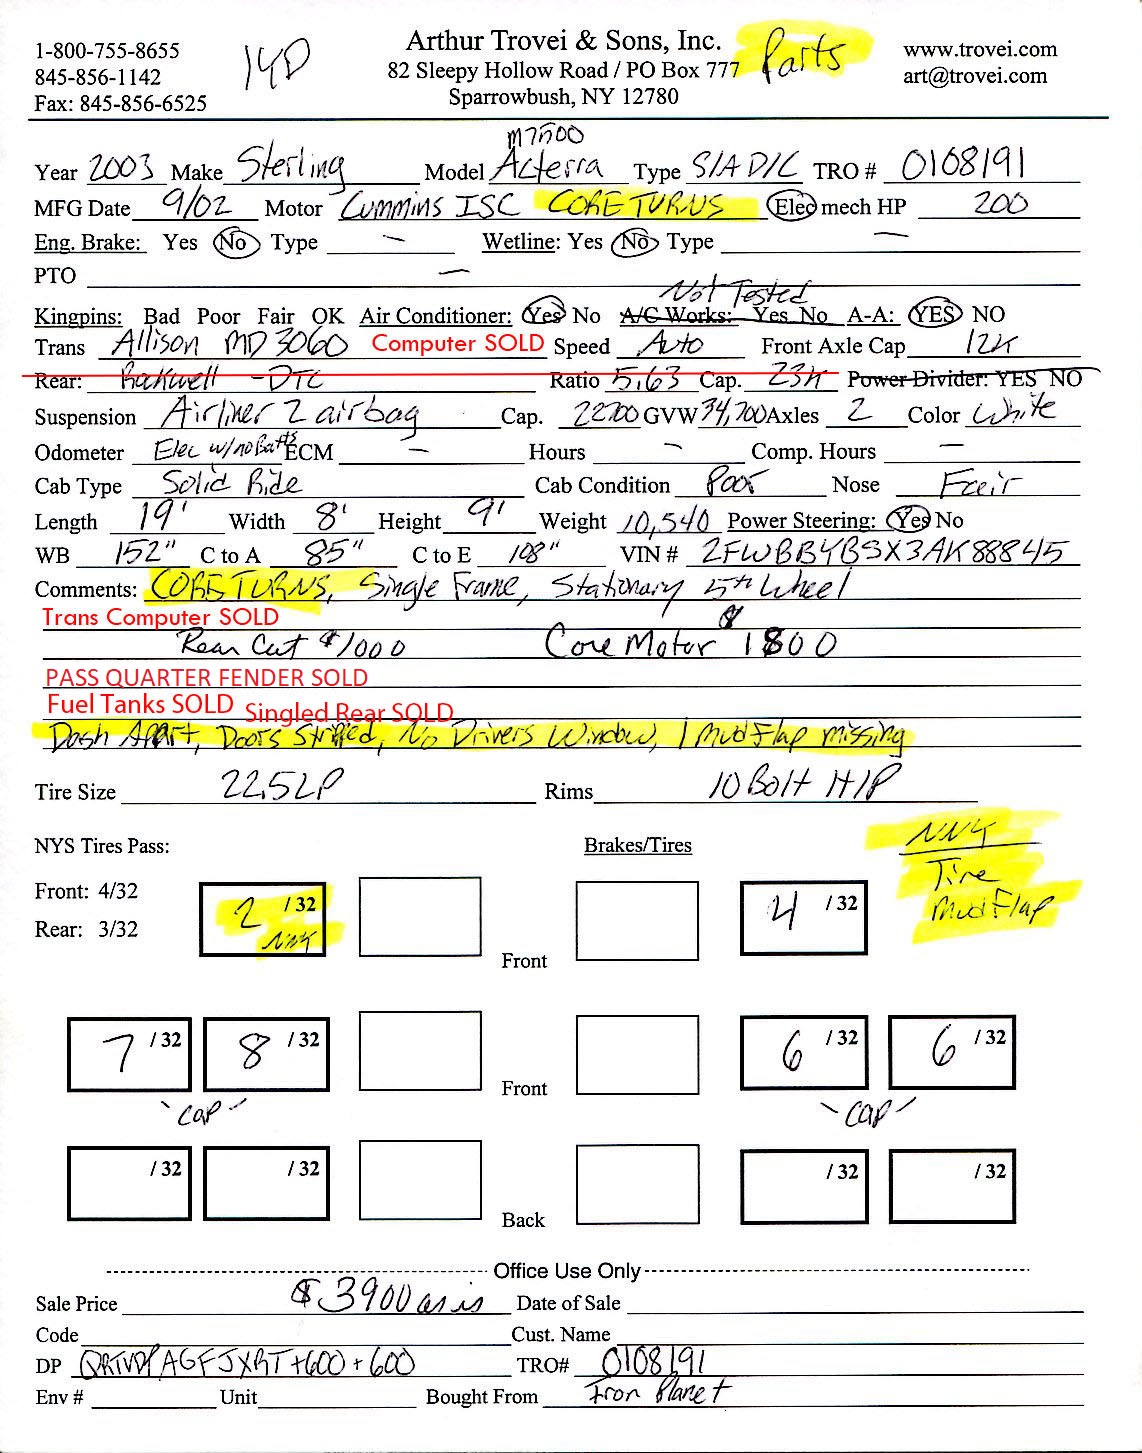 1-800-755-8655
845-856-1142
Fax: 845-856-6525
14D
Arthur Trovei & Sons, Inc.
82 Sleepy Hollow Road / PO Box 777
Sparrowbush, NY 12780
Parts
www.trovei.com
art@trovei.com
M7500
Year 2003 Make Sterling Model Acterra Type S/A D/C TRO # 0108191
MFG Date 9/02 Motor Cummins ISC CORE TURNS Elec mech HP 200
Eng. Brake: Yes No Type — Wetline: Yes No Type —
PTO —
Not Tested
Kingpins: Bad Poor Fair OK Air Conditioner: Yes No A/C Works: Yes No A-A: YES NO
Trans Allison MD3060 Computer SOLD Speed Auto Front Axle Cap 12K
Rear: Rockwell - DTC Ratio 5.63 Cap. 23K Power Divider: YES NO
Suspension Airliner 2 airbag Cap. 22700 GVW 34,700 Axles 2 Color White
Odometer Elec w/no Batts ECM — Hours — Comp. Hours —
Cab Type Solid Ride Cab Condition Poor Nose Fair
Length 19' Width 8' Height 9' Weight 10,540 Power Steering: Yes No
WB 152" C to A 85" C to E 108" VIN # 2FWBBYBSX3AK88845
Comments: CORE TURNS, Single Frame, Stationary 5th Wheel
Trans Computer SOLD
Rear Cut $1000 Core Motor $1800
PASS QUARTER FENDER SOLD
Fuel Tanks SOLD Singled Rear SOLD
Dash Apart, Doors Stripped, No Drivers Window, 1 Mud Flap missing
Tire Size 22.5LP Rims 10 Bolt H/P
NYS Tires Pass: Brakes/Tires
NNY
Tire
Mud Flap
Front: 4/32
Rear: 3/32
2 /32 NNY 4 /32
Front
7 /32 8 /32 6 /32 6 /32
Front
- CAP - - CAP -
/32 /32 /32 /32
Back
Office Use Only
Sale Price $3900 as is Date of Sale
Code Cust. Name
DP AGFJXRT+600+600 TRO# 0108191
Env # Unit Bought From Iron Planet